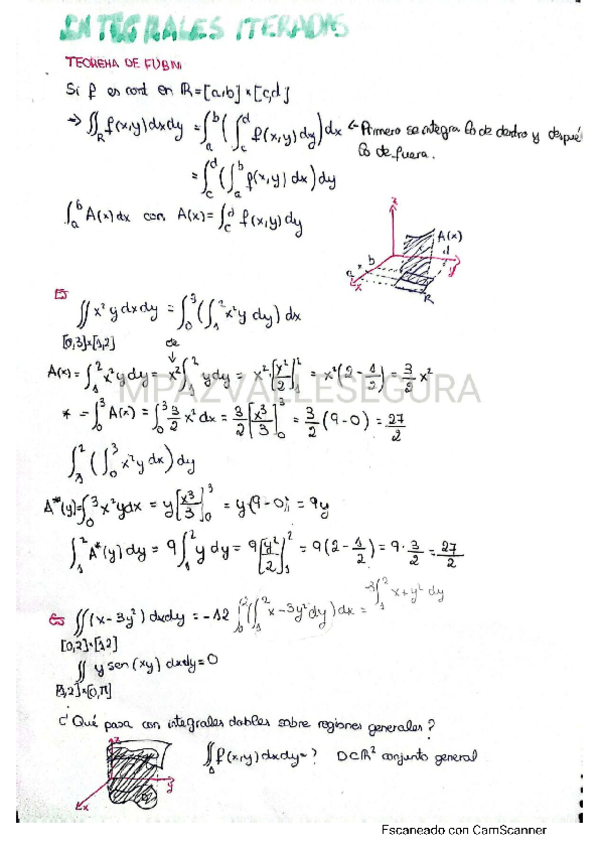 INTEGRALES ITERADAS
TEOREMA DE FUBINI
Si f es cont en R=[a,b]×[c,d]
→ ∬_R f(x,y)dxdy = ∫_a^b (∫_c^d f(x,y)dy)dx ← Primero se integra lo de dentro y después
lo de fuera.
= ∫_c^d (∫_a^b f(x,y)dx)dy
∫_a^b A(x)dx con A(x)=∫_c^d f(x,y)dy
z
A(x)
a
b
d
x
y
R
Ej
∬x²ydxdy = ∫_0^3 (∫_1^2 x²y dy)dx
[0,3]×[1,2]
cte
A(x)=∫_1^2 x²ydy = x²∫_1^2 ydy = x²·[x²/2]_1^2 = x²(2-1/2) = 3/2 x²
MPAZVALLESEGURA
* = ∫_0^3 A(x) = ∫_0^3 3/2 x²dx = 3/2[x³/3]_0^3 = 3/2(9-0) = 27/2
∫_1^2 (∫_0^3 x²y dx)dy
A*(y)=∫_0^3 x²ydx = y[x³/3]_0^3 = y(9-0) = 9y
∫_1^2 A*(y)dy = 9∫_1^2 ydy = 9[y²/2]_1^2 = 9(2-1/2) = 9·3/2 = 27/2
Ej ∬(x-3y²)dxdy = -12 ∫_0^2 (∫_1^2 x-3y²dy)dx = -3∫_1^2 x+y² dy
[0,2]×[1,2]
∬ y sen(xy) dxdy=0
[1,2]×[0,π]
¿Qué pasa con integrales dobles sobre regiones generales?
z
y
x
∬ f(x,y)dxdy=? D⊂R² conjunto general
Escaneado con CamScanner